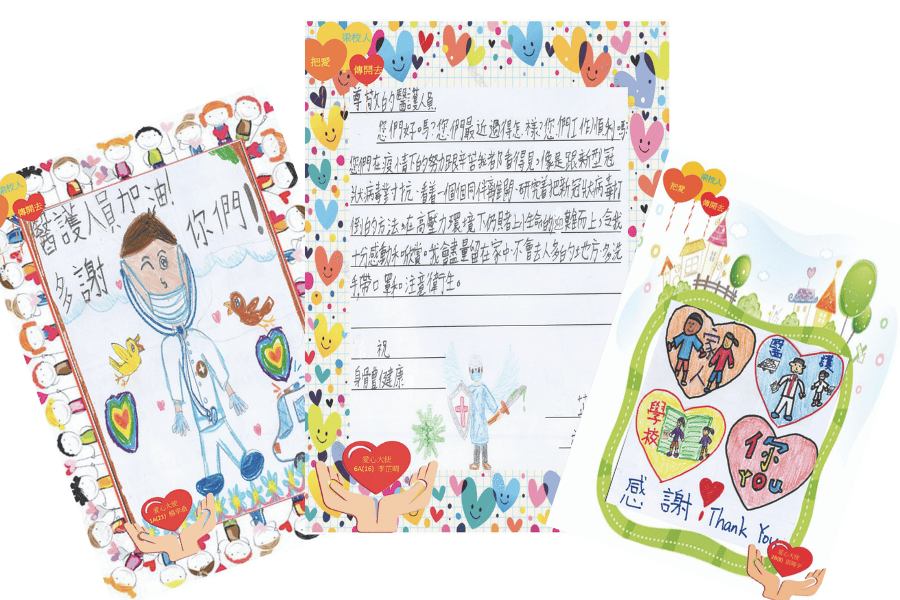 梁校人
傳開去
醫護人員加油!
多謝
你們!
愛心大使
梁校人
把愛
傳開去
尊敬的醫護人員
您們好嗎?您們最近過得怎樣?您們工作順利嗎?
您們在疫情下的努力跟辛苦我都看得見,像是跟新型冠
狀病毒對抗,看着一個個同伴離開,研究着把新冠狀病毒打
倒的方法,在高壓力環境下仍賭上生命的迎難而上,令我
十分感動和欣賞。我會盡量留在家中,不會去人多的地方,多洗
手,帶口罩和注意衛生。
祝
身體健康
愛心大使
6A(16) 李芷晴
梁校人
把愛
傳開去
家人
醫護
學校
你
YOU
感謝
Thank You
愛心大使